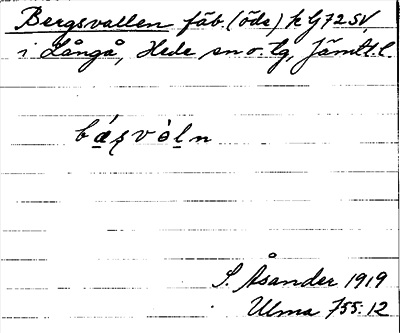 Bergsvallen fäb. (öde) k G 72 SV,
i Långå, Hede sn o. tg, Jämtl. l.
bǽ̲ʂvòl̲n
S. Åsander 1919
Ulma 755:12